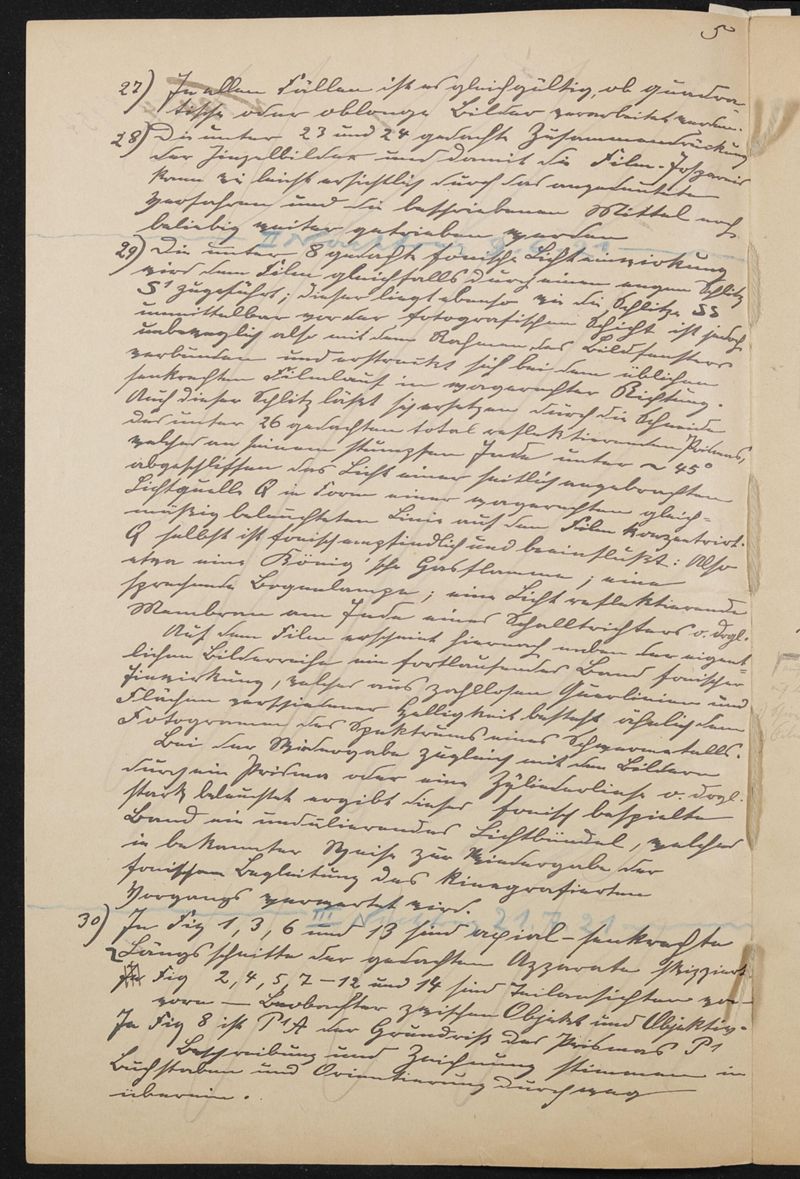 5
27) In allen Fällen ist es gleichgültig, ob quadra-
tische oder oblonge Bilder verarbeitet werden.
28) Die unter 23 und 24 gedachte Zusammendrückung
der Einzelbilder und damit die Film-Ersparnis
kann wie leicht ersichtlich durch das angedeutete
Verfahren und die beschriebenen Mittel noch
beliebig weiter getrieben werden
II Nachtrag 21
29) Die unter 8 gedachte fonische Lichteinwirkung
wird dem Film gleichfalls durch einen engen Schlitz
S¹ zugeführt; dieser liegt ebenso wie die Schlitze SS
unmittelbar vor der fotografischen Schicht ist jedoch
unbeweglich also mit dem Rahmen des Bildfensters
verbunden und erstreckt sich bei dem üblichen
senkrechten Filmlauf in wagerechter Richtung.
Auch dieser Schlitz läßt sich ersetzen durch die Schneide
des unter 26 gedachten total reflektierenden Prismas,
welches an seinem stumpfen Ende unter ~ 45°
abgeschliffen das Licht einer seitlich angebrachten
Lichtquelle Q in Form einer wagerechten gleich-
mäßig beleuchteten Linie auf den Film konzentrirt.
Q selbst ist fonisch empfindlich und beeinflußt: Also
etwa eine König'sche Gasflamme; eine
sprechende Bogenlampe; eine Licht reflektierende
Membran am Ende eines Schalltrichters o. drgl.
Auf dem Film erscheint hiernach neben der eigent-
lichen Bilderreihe ein fortlaufendes Band fonischer
Einwirkung, welches aus zahllosen Querlinien und
Flächen verschiedener Helligkeit besteht ähnlich dem
Fotogramm des Spektrums eines Schwermetalls.
Bei der Wiedergabe zugleich mit den Bildern
durch ein Prisma oder eine Zylinderlinse o. drgl.
stark beleuchtet ergibt dieses fonisch bespielte
Band ein undulierendes Lichtbündel, welches
in bekannter Weise zur Wiedergabe der
fonischen Begleitung des kinegrafierten
Vorgangs verwertet wird.
III Nachtrag 21.7.21
30) In Fig 1, 3, 6 und 13 sind axial-senkrechte
Längsschnitte der gedachten Apparate skizziert
In Fig 2, 4, 5, 7-12 und 14 sind Teilansichten von
vorn — Beobachter zwischen Objekt und Objektiv.
In Fig 8 ist P¹A der Grundriß des Prismas P¹
Beschreibung und Zeichnung stimmen in
Buchstaben und Orientierung durchweg
überein.